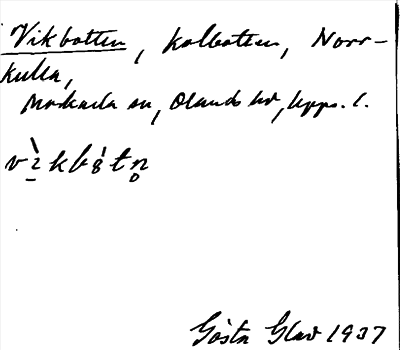 Vikbotten, kolbotten, Norr-
kulla,
Morkarla sn, Olands hd, Upps. l.
v̀ikbåtn̥
Gösta Glad 1937